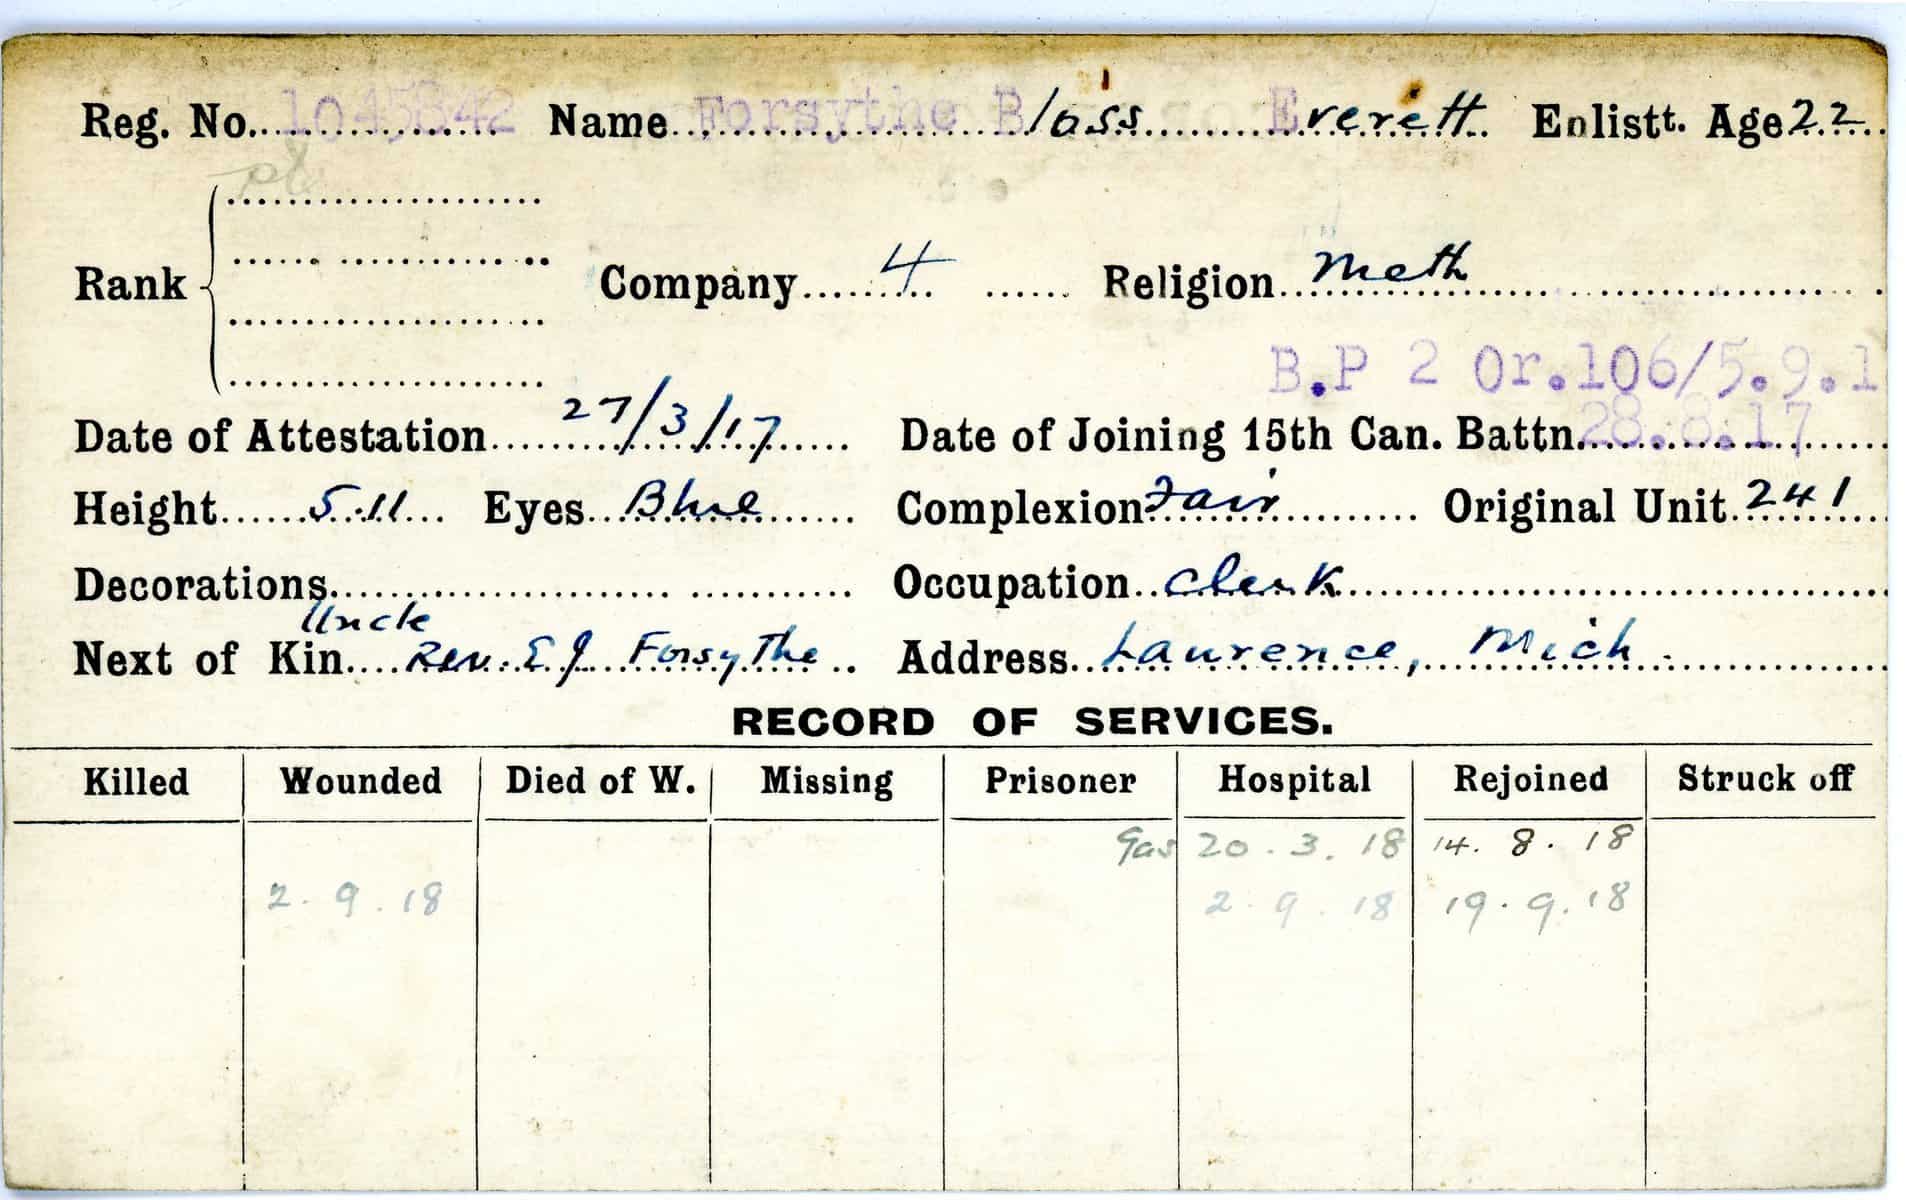 Reg. No. 1045842 Name Forsythe Blass Everett Enlistt. Age 22
pte
Rank Company 4 Religion Meth
B.P 2 Or.106/5.9.1
Date of Attestation 27/3/17 Date of Joining 15th Can. Battn. 28.8.17
Height 5.11 Eyes Blue Complexion Fair Original Unit 241
Decorations Occupation Clerk
Uncle
Next of Kin Rev. E J Forsythe Address Laurence, Mich
RECORD OF SERVICES.
Killed Wounded Died of W. Missing Prisoner Hospital Rejoined Struck off
Gas 20.3.18 14.8.18
2.9.18 2.9.18 19.9.18